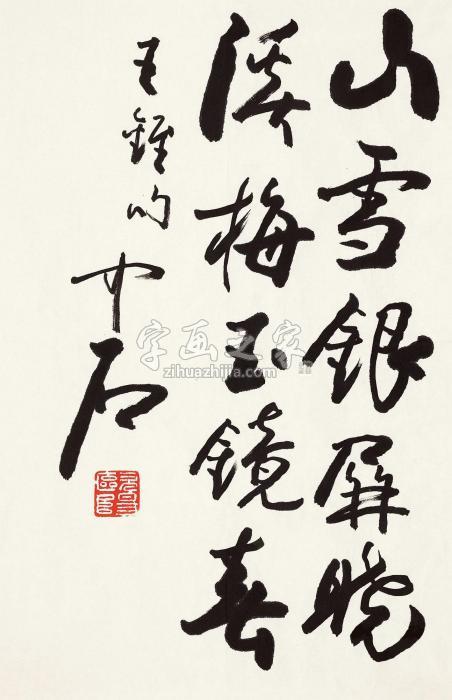 山雪銀屏曉
溪梅玉鏡春
王 句
中石
字画之家
zihuazhijia.com